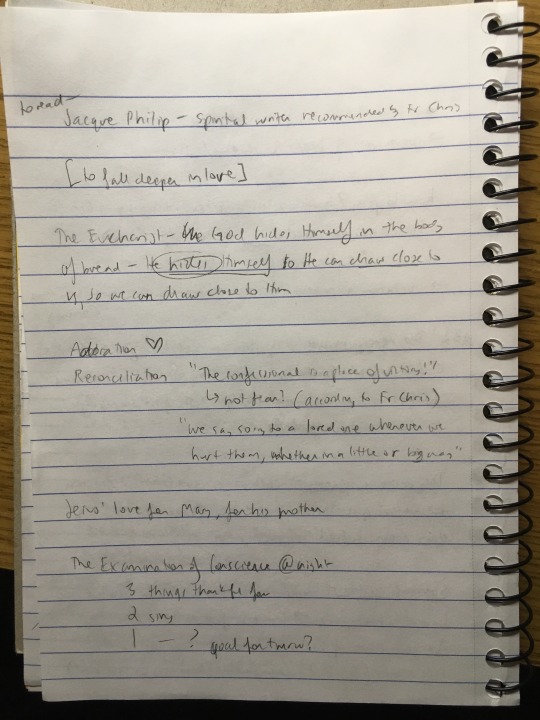 to read -
Jacque Philip - spiritual writer recommended by Fr Chris
[to fall deeper in love]
The Eucharist - God hides Himself in the body
of bread - He hides Himself so He can draw close to
us, so we can draw close to Him
Adoration ♡
Reconciliation "The confessional is a place of victory!"
↳ not fear! (according to Fr Chris)
"We say sorry to a loved one whenever we
hurt them, whether in a little or big way"
Jesus' love for Mary, for his mother
The Examination of Conscience @ night
3 things thankful for
2 sins
1 - ? goal for tmrw?